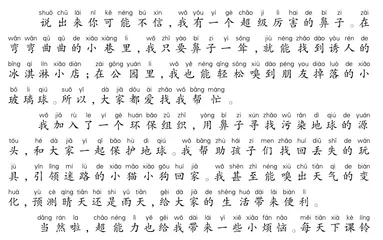 shuō chū lái nǐ kě néng bù xìn wǒ yǒu yí gè chāo jí lì hai de bí zi zài
说出来你可能不信，我有一个超级厉害的鼻子。在
wān wān qū qū de xiǎo xiàng lǐ wǒ zhǐ yào bí zi yì sǒng jiù néng zhǎo dào yòu rén de
弯弯曲曲的小巷里，我只要鼻子一耸，就能找到诱人的
bīng qí lín xiǎo diàn zài gōng yuán lǐ wǒ yě néng qīng sōng xiù dào péng you diào luò de xiǎo
冰淇淋小店；在公园里，我也能轻松嗅到朋友掉落的小
bō li qiú suǒ yǐ dà jiā dōu ài zhǎo wǒ bāng máng
玻璃球。所以，大家都爱找我帮忙。
wǒ jiā rù le yí gè huán bǎo zǔ zhī yòng bí zi xún zhǎo wū rǎn dì qiú de yuán
我加入了一个环保组织，用鼻子寻找污染地球的源
tóu hé dà jiā yì qǐ bǎo hù dì qiú wǒ bāng zhù hái zi men zhǎo huí diū shī de wán
头，和大家一起保护地球。我帮助孩子们找回丢失的玩
jù yǐn lǐng mí lù de xiǎo māo xiǎo gǒu huí jiā wǒ shèn zhì néng xiù chū tiān qì de biàn
具，引领迷路的小猫小狗回家。我甚至能嗅出天气的变
huà yù cè qíng tiān hái shi yǔ tiān gěi dà jiā de shēng huó dài lái biàn lì
化，预测晴天还是雨天，给大家的生活带来便利。
dāng rán la chāo néng lì yě gěi wǒ dài lái yì xiē xiǎo fán nǎo měi tiān xià kè líng
当然啦，超能力也给我带来一些小烦恼。每天下课铃